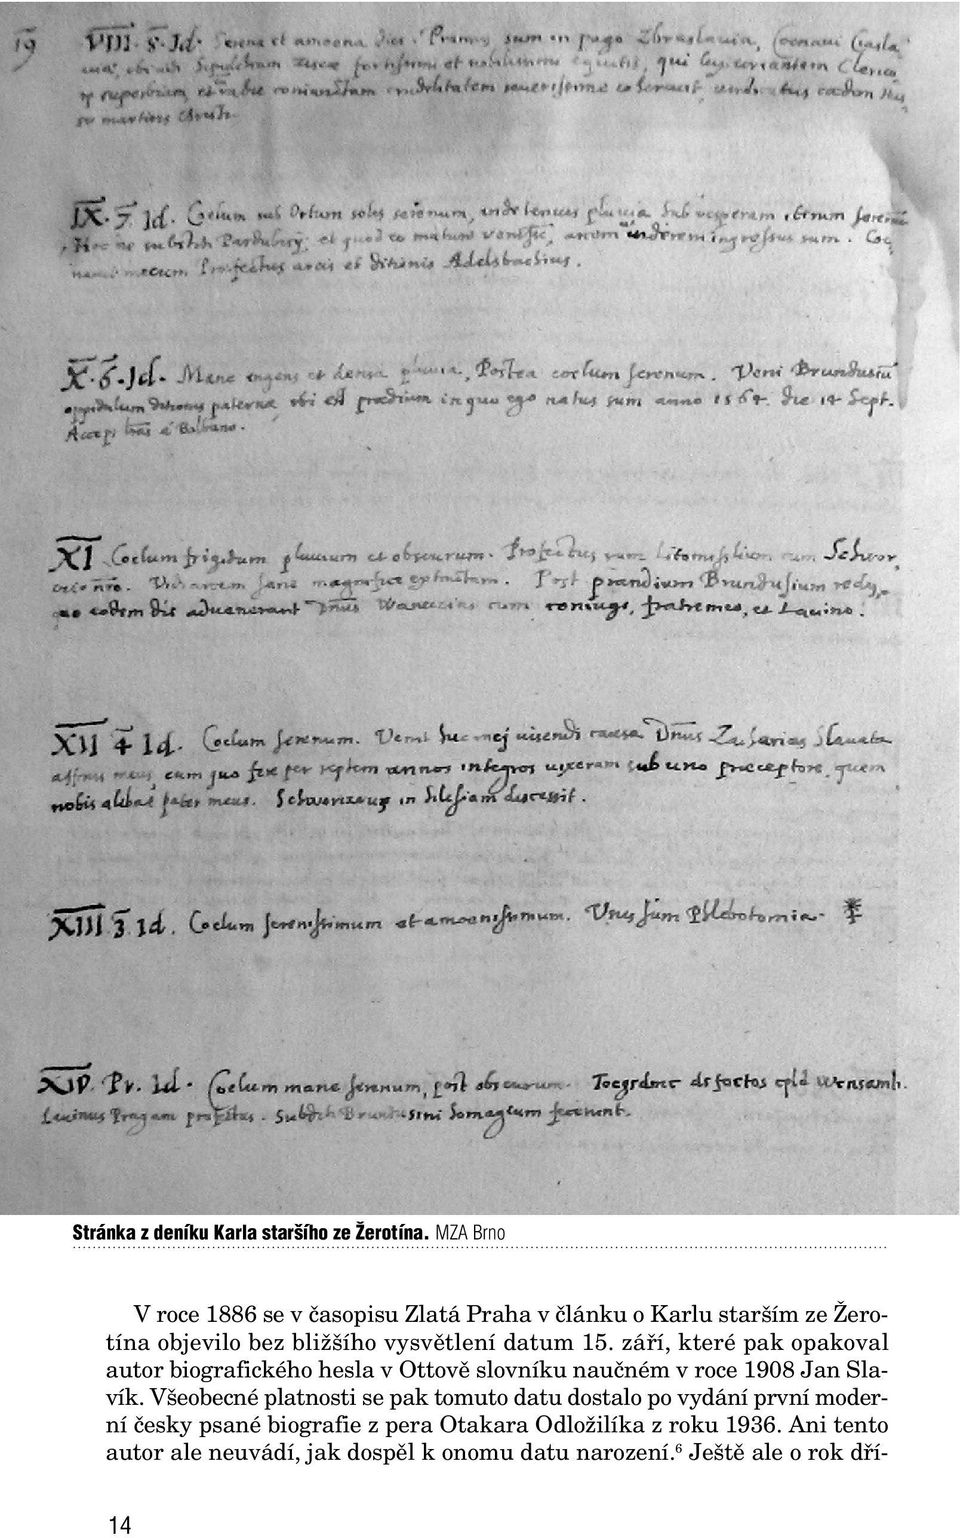 19 VIII. 8. Id. Serena et amoena dies. Pransus sum in pago Zbraslauia, Coenaui Czasla
fortissimi et nobilissimi equitis, qui
et superbiam, et rabie crudelitatem seuerissime
martiris
IX. 7. Id. Coelum sub Ortum solis serenum, inde tenuis pluuia Sub vesperam iterum serenū
Hoc et quod eo mature venissē, arcem ingressus sum. Coe
mecum Profectus arcis et ditionis Adelsbachius.
X. 6. Id. Mane ingens et densa pluuia, Postea coelum serenum. Veni Brundusiū
oppidulum ditionis paternæ ubi est prædium in quo ego natus sum anno 1564. die 14 Sept.
Accepi a Balbano.
XI Coelum frigidum pluuium et obscurum. Profectus sum Litomisslium cum
Vidi arcem sane magnifice extructam. Post prandium Brundusium redij,
quo eodem die aduenerant Dnus cum coniuge, fratre meo, et Lauino.
XII 4 Id. Coelum serenum. Venit huc mej uisendi causa Dnus Zacharias Slauata
affinis meus, cum quo fere per septem annos integros uixeram sub uno præceptore, quem
nobis alebat pater meus. in Silesiam discessit.
XIII 3. Id. Coelum serenissimum et amoenissimum. Usus sum Phlebotomia.
XIV. Pr. Id. Coelum mane serenum, post obscurum.
Lauinus Pragam profectus.
Stránka z deníku Karla staršího ze Žerotína. MZA Brno
V roce 1886 se v časopisu Zlatá Praha v článku o Karlu starším ze Žero-
tína objevilo bez bližšího vysvětlení datum 15. září, které pak opakoval
autor biografického hesla v Ottově slovníku naučném v roce 1908 Jan Sla-
vík. Všeobecné platnosti se pak tomuto datu dostalo po vydání první moder-
ní česky psané biografie z pera Otakara Odložilíka z roku 1936. Ani tento
autor ale neuvádí, jak dospěl k onomu datu narození.⁶ Ještě ale o rok dří-
14